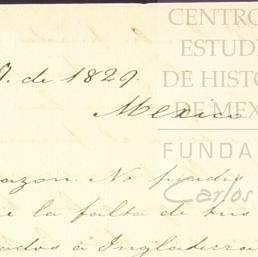 CENTRO
ESTUDI
DE HISTO
DE MEX
FUNDA
Carlos
9. de 1829.
Mexico
azon. No puedo
e la falta de sus
ados á Inglaterra